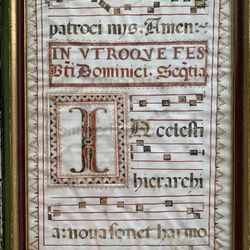 patroci nijs. Amen:
IN VTROQVE FES
Bti Dominici. Seqtia
IN celesti
hierarchi
a: noua sonet harmo